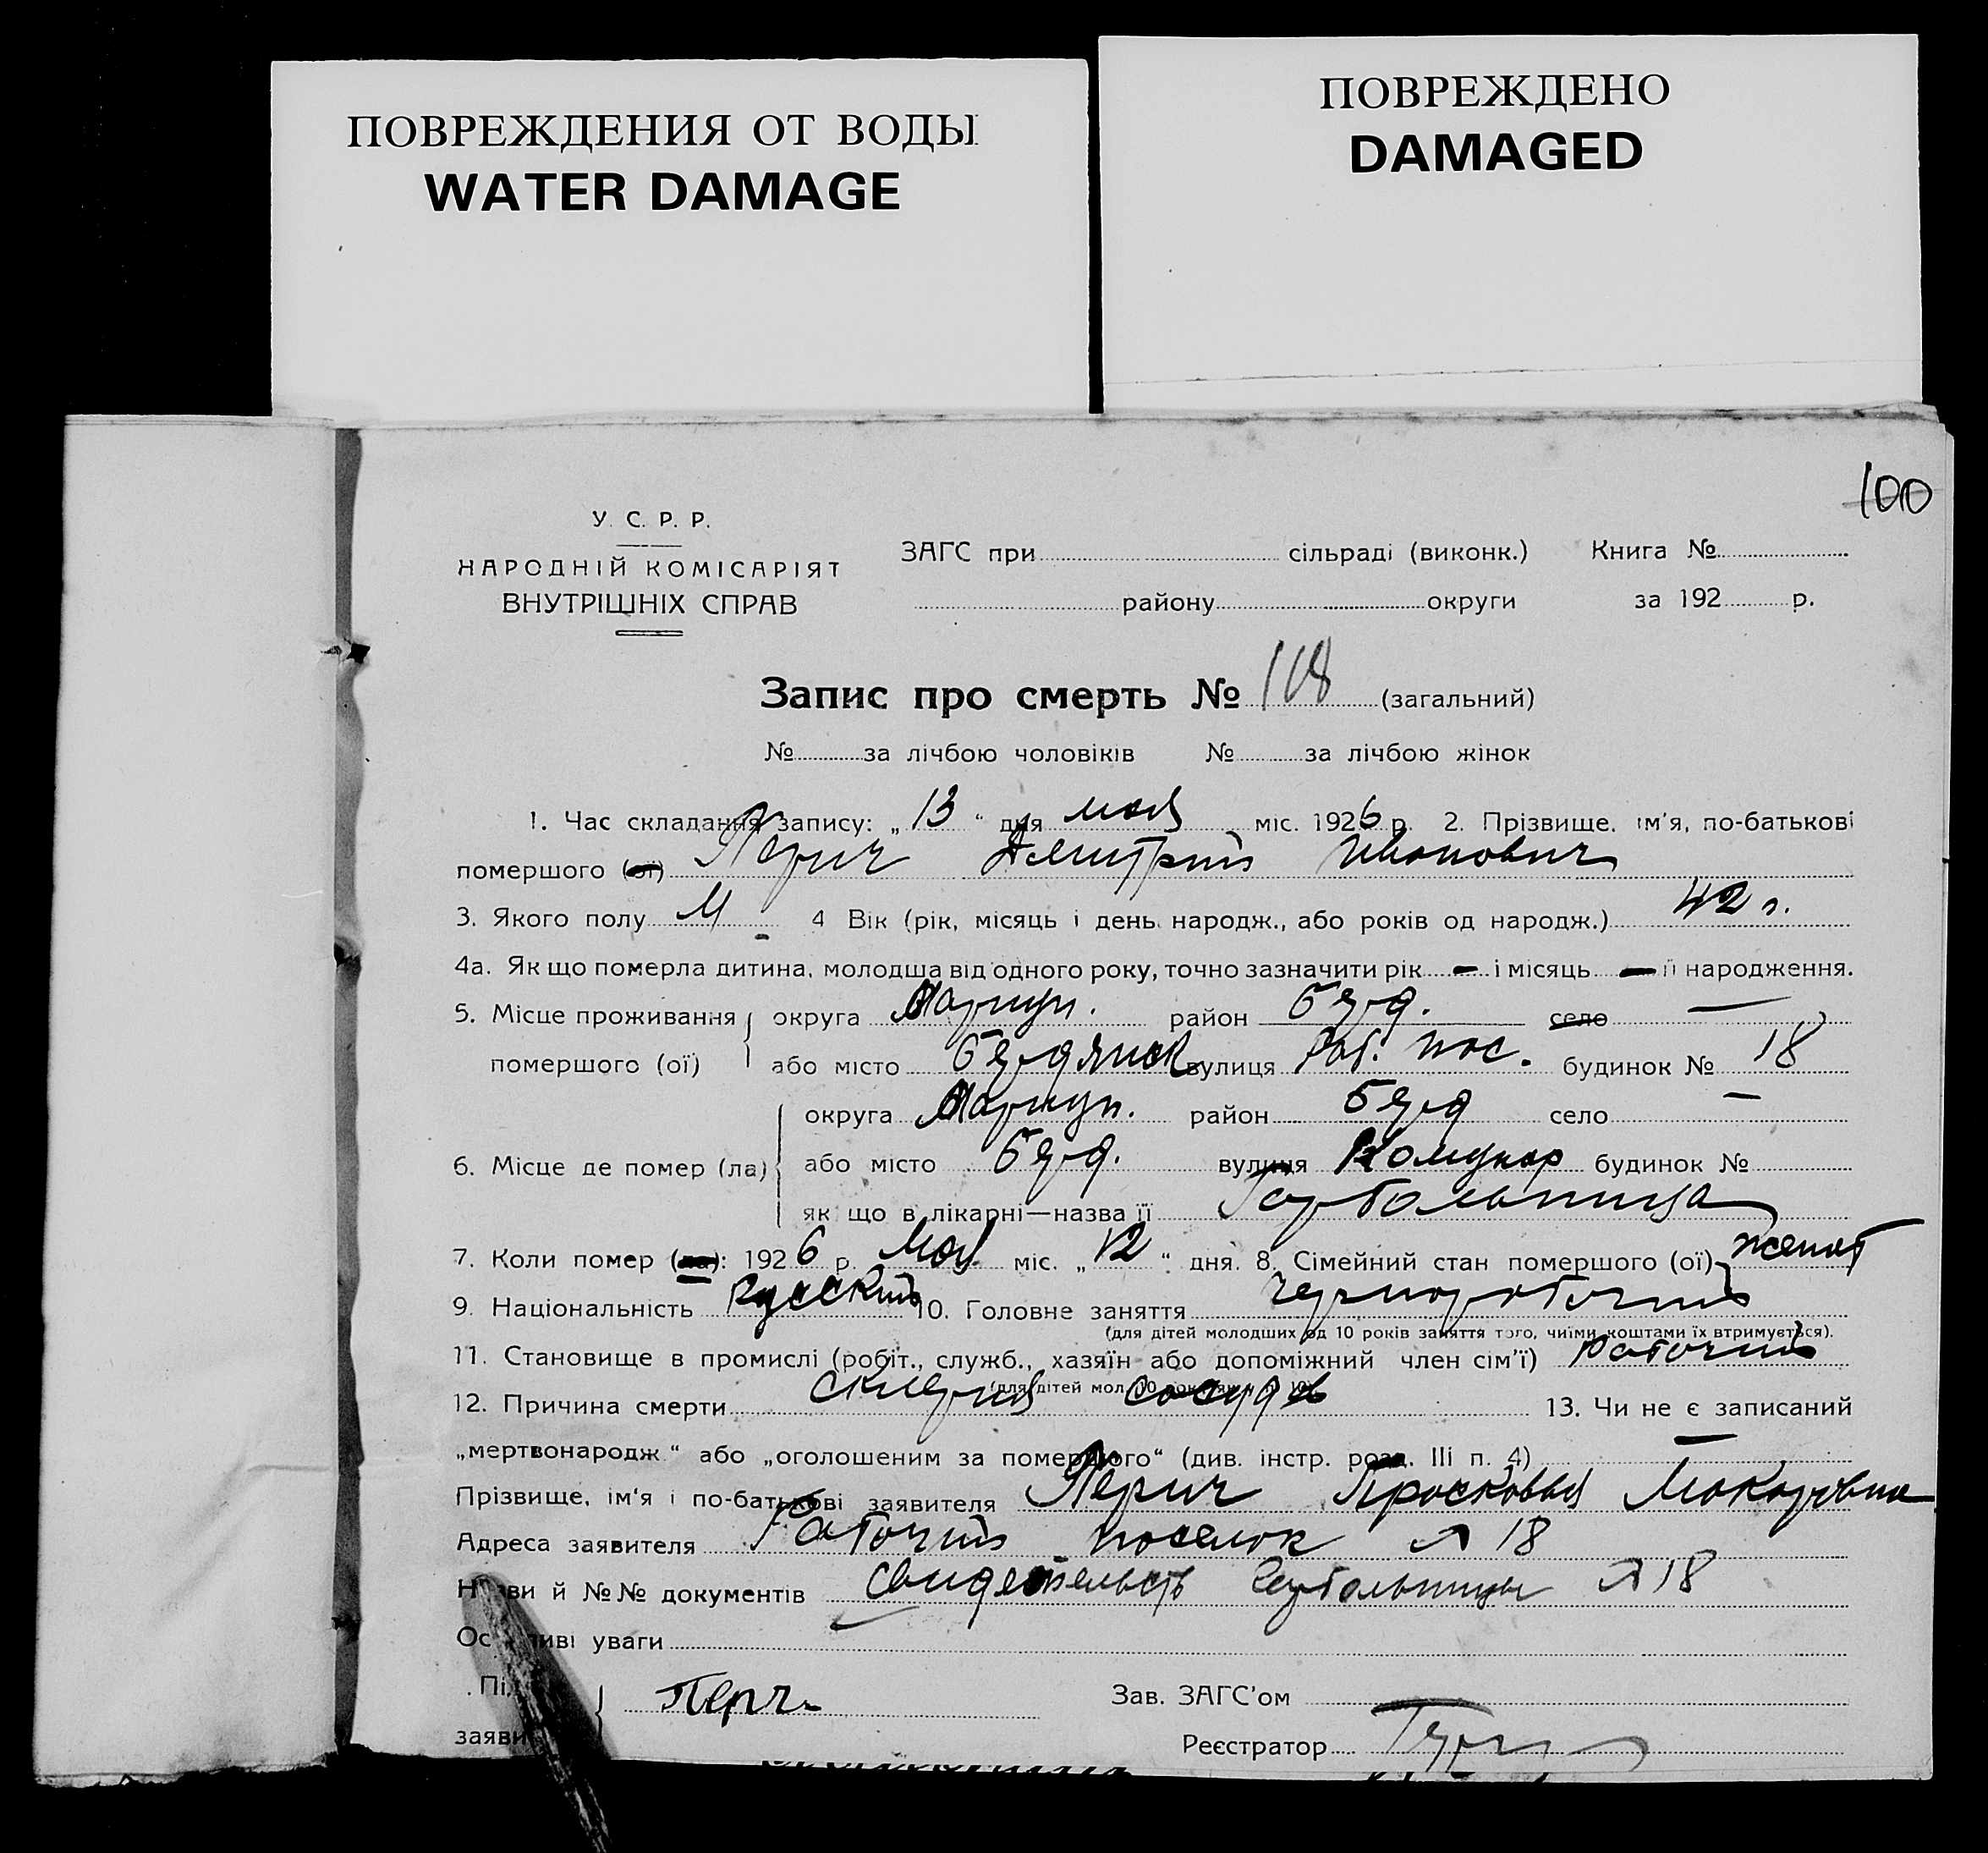 ПОВРЕЖДЕНИЯ ОТ ВОДЫ
WATER DAMAGE
ПОВРЕЖДЕНО
DAMAGED
100
У. С. Р. Р.
НАРОДНІЙ КОМІСАРІЯТ
ВНУТРІШНІХ СПРАВ
ЗАГС при сільраді (виконк.) Книга №
району округи за 192 р.
Запис про смерть № 108 (загальний)
№ за лічбою чоловіків № за лічбою жінок
1. Час складання запису: „13“ дня мая міс. 1926 р. 2. Прізвище, ім'я, по-батькові
помершого (ої) Перич Дмитрий Иванович
3. Якого полу М 4 Вік (рік, місяць і день народж., або років од народж.) 42 г.
4а. Як що померла дитина, молодша від одного року, точно зазначити рік — і місяць — її народження.
5. Місце проживання округа Мариуп. район Берд. село —
помершого (ої) або місто Бердянск вулиця Раб. пос. будинок № 18
округа Мариуп. район Берд село —
6. Місце де помер (ла) або місто Берд. вулиця Комунар будинок №
як що в лікарні—назва її Горбольница
7. Коли помер (ла): 1926 р. Мая міс. „12“ дня. 8. Сімейний стан помершого (ої) женат
9. Національність Русский 10. Головне заняття чернорабочий
(для дітей молодших од 10 років заняття того, чиїми коштами їх втримується).
11. Становище в промислі (робіт., служб., хазяїн або допоміжний член сім'ї) рабочий
(для дітей мол. 10
12. Причина смерти сосудов 13. Чи не є записаний
„мертвонародж.“ або „оголошеним за померлого“ (див. інстр. розд. III п. 4) —
Прізвище, ім'я і по-батькові заявителя Перич Просковья Макаровна
Адреса заявителя Рабочий поселок № 18
й №№ документів Свидетельств Горбольницы № 18
уваги
Перич Зав. ЗАГС'ом
Реєстратор